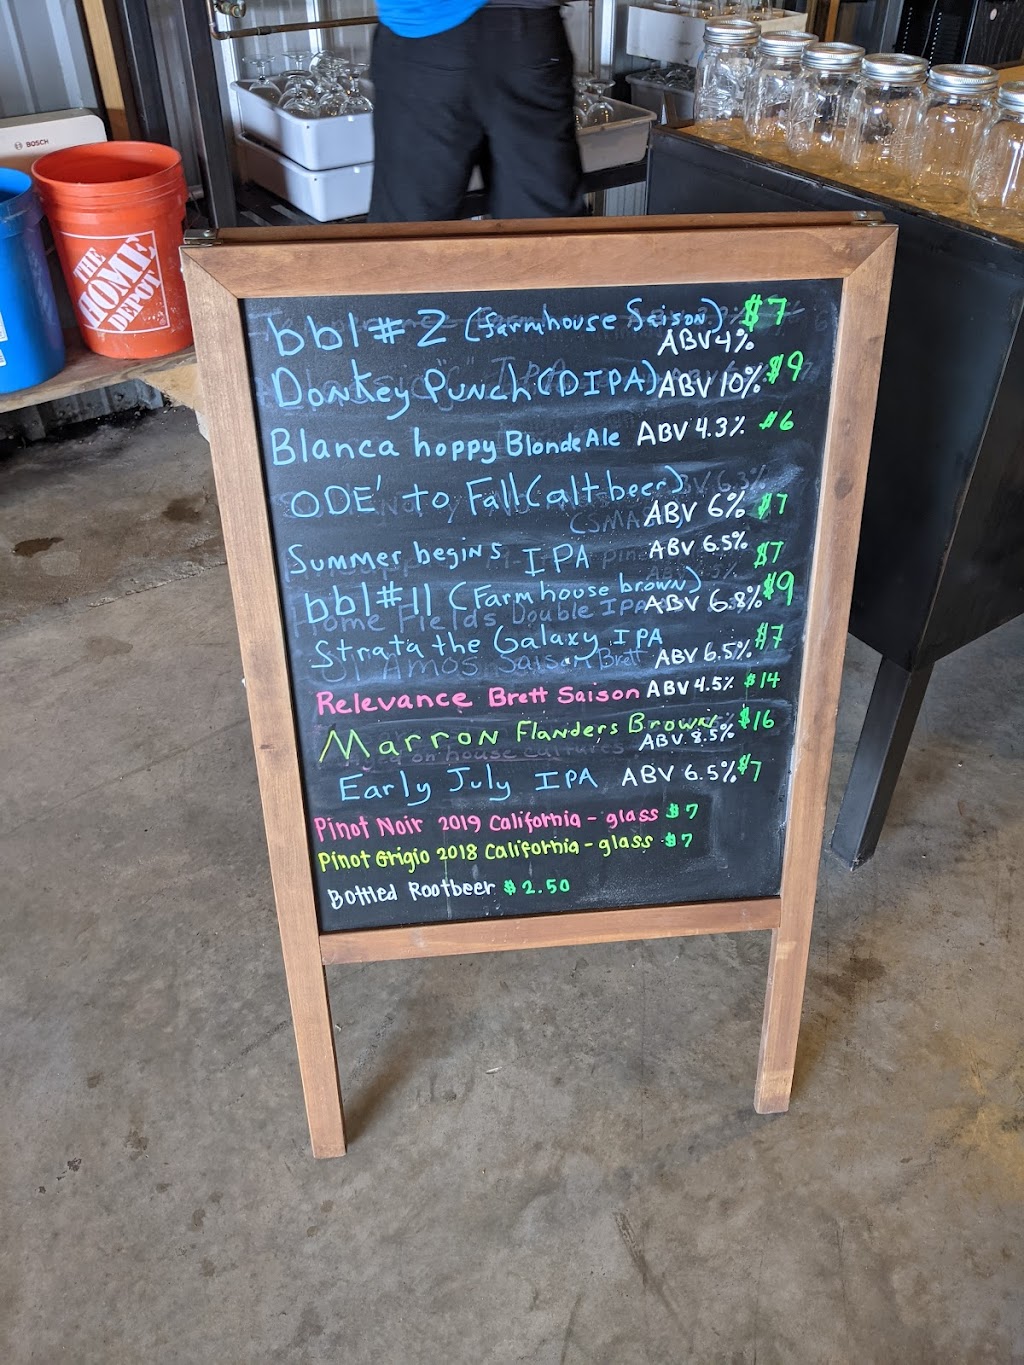 BOSCH
THE
HOME
DEPOT
bbl #2 (farmhouse Saison) $7
ABV 4%
Donkey Punch (DIPA) ABV 10% $9
Blanca hoppy Blonde Ale ABV 4.3% $6
ODE' to Fall (altbeer)
ABV 6% $7
Summer begins IPA ABV 6.5% $7
bbl #11 (Farmhouse brown) $9
ABV 6.8%
Strata the Galaxy IPA $7
ABV 6.5%
Relevance Brett Saison ABV 4.5% $14
Marron Flanders Brown $16
ABV 8.5%
Early July IPA ABV 6.5% $7
Pinot Noir 2019 California - glass $7
Pinot Grigio 2018 California - glass $7
Bottled Rootbeer $2.50